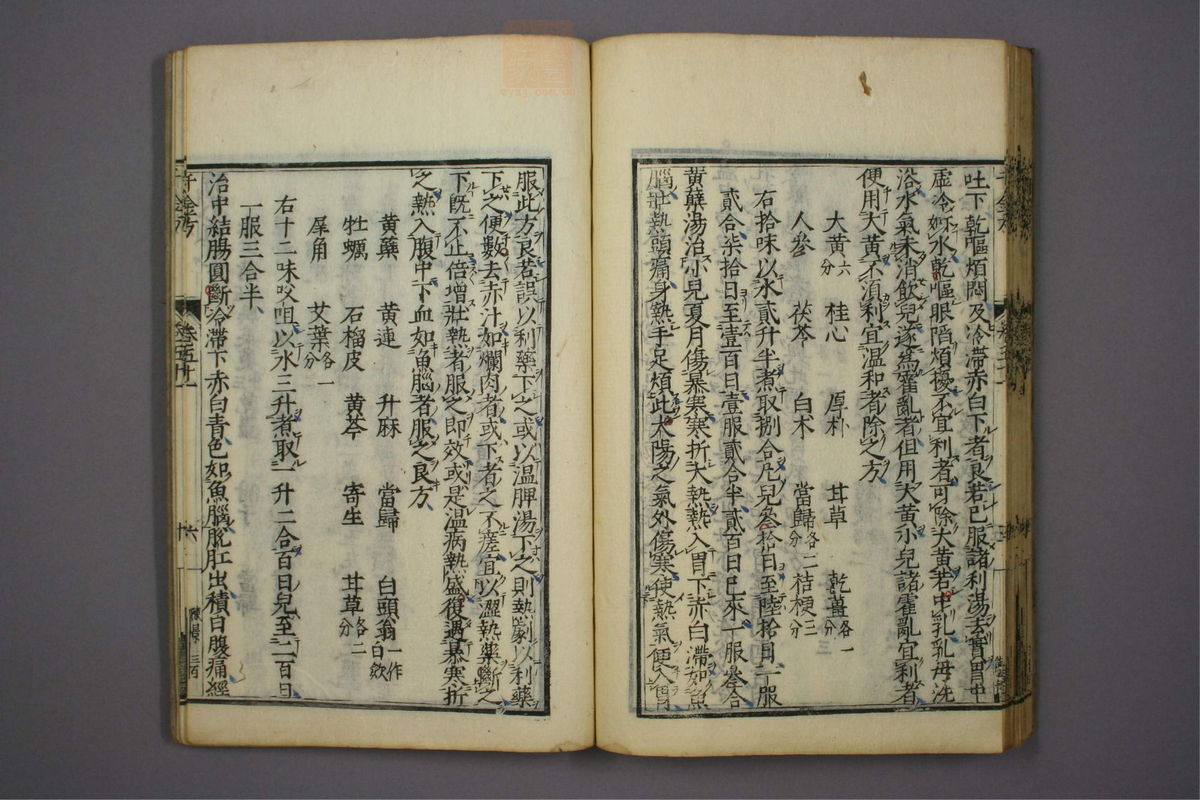 吐下乾嘔煩悶及冷滯赤白下者良若已服諸利湯去實胃中
虛冷如水乾嘔眼陷煩擾不宜利者可除大黃若中乳乳母洗
浴水氣未消飲兒遂爲霍亂者但用大黃小兒諸霍亂宜利者
便用大黃不須利宜溫和者除之方
大黃六分 桂心 厚朴 甘草 乾薑各一分
人參 茯苓 白朮 當歸各二分 桔梗三分
右拾味以水貳升半煮取捌合凡兒叁拾日至陸拾日一服
貳合柒拾日至壹百日壹服貳合半貳百日已來一服叁合
黃蘗湯治小兒夏月傷暴寒寒折大熱熱入胃下赤白滯如魚
腦壯熱頭痛身熱手足煩此太陽之氣外傷寒使熱氣便入胃
服此方良若誤以利藥下之或以溫脾湯下之則熱劇以利藥
下之便數去赤汁如爛肉者或下之不瘥宜以澀熱藥斷之
下既不止倍增壯熱者服之即效或是溫病熱盛復遇暴寒折
之熱入腹中下血如魚腦者服之良方
黃蘗 黃連 升麻 當歸 白頭翁一作白斂
牡蠣 石榴皮 黃芩 寄生 甘草各二分
犀角 艾葉各一分
右十二味㕮咀以水三升煮取一升二合百日兒至二百日
一服三合半
治中結腸圓斷冷滯下赤白青色如魚腦脫肛出積日腹痛經
千金方
卷五十一
十六